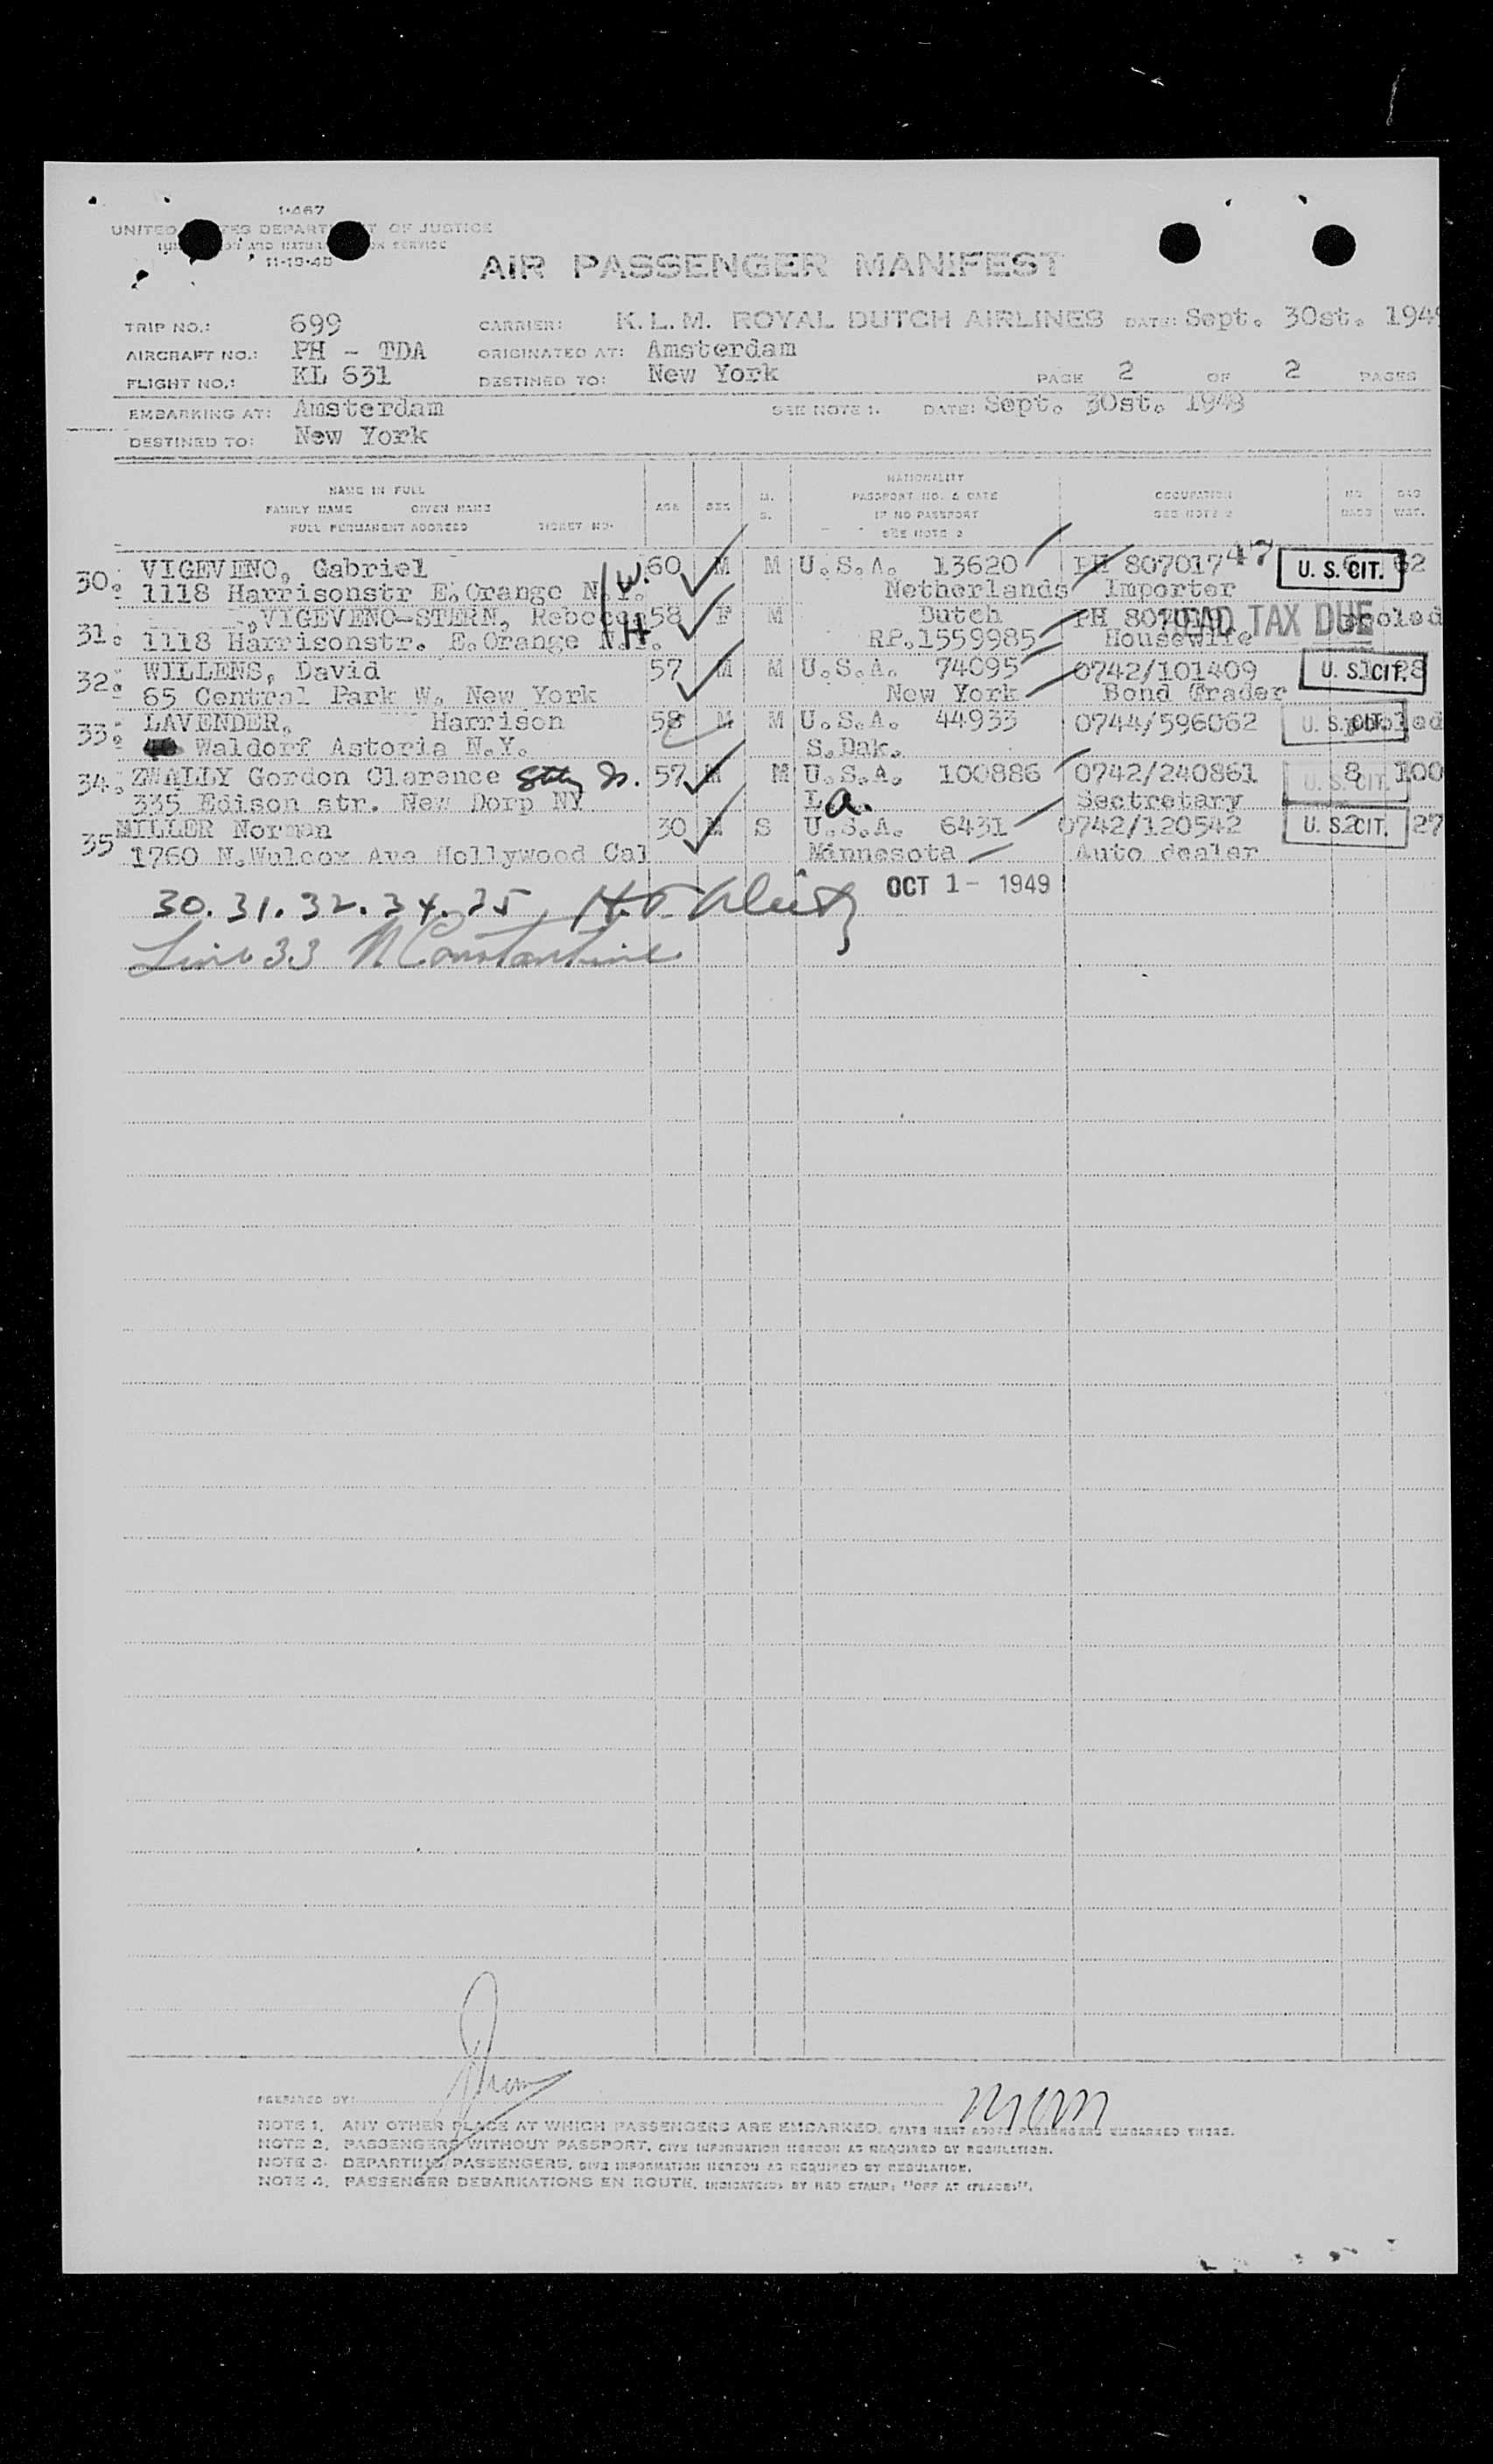 1-467
UNITED STATES DEPARTMENT OF JUSTICE
IMMIGRATION AND NATURALIZATION SERVICE
11-19-45
AIR PASSENGER MANIFEST
TRIP NO.: 699 CARRIER: K.L.M. ROYAL DUTCH AIRLINES DATE: Sept. 30st. 1949
AIRCRAFT NO.: PH - TDA ORIGINATED AT: Amsterdam
FLIGHT NO.: KL 631 DESTINED TO: New York PAGE 2 OF 2 PAGES
EMBARKING AT: Amsterdam SEE NOTE 1. DATE: Sept. 30st. 1949
DESTINED TO: New York
NAME IN FULL
FAMILY NAME GIVEN NAME
FULL PERMANENT ADDRESS TICKET NO.
AGE SEX M. S.
NATIONALITY
PASSPORT NO. & DATE
IF NO PASSPORT
SEE NOTE 2
OCCUPATION
SEE NOTE 2
NO BAGS
BAG WGT.
30. VIGEVENO, Gabriel W. 60 M M U.S.A. 13620 PH 807017 47 U. S. CIT. 6 62
1118 Harrisonstr E.Orange N.Y. Netherlands Importer
31. ,VIGEVENO-STERN, Rebecca H 58 F M Dutch PH HEAD TAX DUE pooled
1118 Harrisonstr. E.Orange N.Y. RP.1559985 Housewife
32. WILLENS, David 57 M M U.S.A. 74095 0742/101409 U. S. CIT. 1 28
65 Central Park W. New York New York Bond Grader
33. LAVENDER, Harrison 58 M M U.S.A. 44933 0744/596062 U. S. CIT. pooled
Waldorf Astoria N.Y. S.Dak.
34. ZWALLY Gordon Clarence Jr. 57 M M U.S.A. 100886 0742/240861 U. S. CIT. 8 100
335 Edison str. New Dorp NY La. Sectretary
35 MILLER Norman 30 M S U.S.A. 6431 0742/120542 U. S. CIT. 2 27
1760 N.Wulcox Ave Hollywood Cal Minnesota Auto dealer
30. 31. 32. 34. 35, OCT 1- 1949
Line 33 N Constantine
PREPARED BY:
NOTE 1. ANY OTHER PLACE AT WHICH PASSENGERS ARE EMBARKED, STATE NEXT ABOVE PASSENGERS EMBARKED THERE.
NOTE 2. PASSENGERS WITHOUT PASSPORT, GIVE INFORMATION HEREON AS REQUIRED BY REGULATION.
NOTE 3. DEPARTING PASSENGERS, GIVE INFORMATION HEREON AS REQUIRED BY REGULATION.
NOTE 4. PASSENGER DEBARKATIONS EN ROUTE, INDICATE(D) BY RED STAMP: "OFF AT (PLACE)".